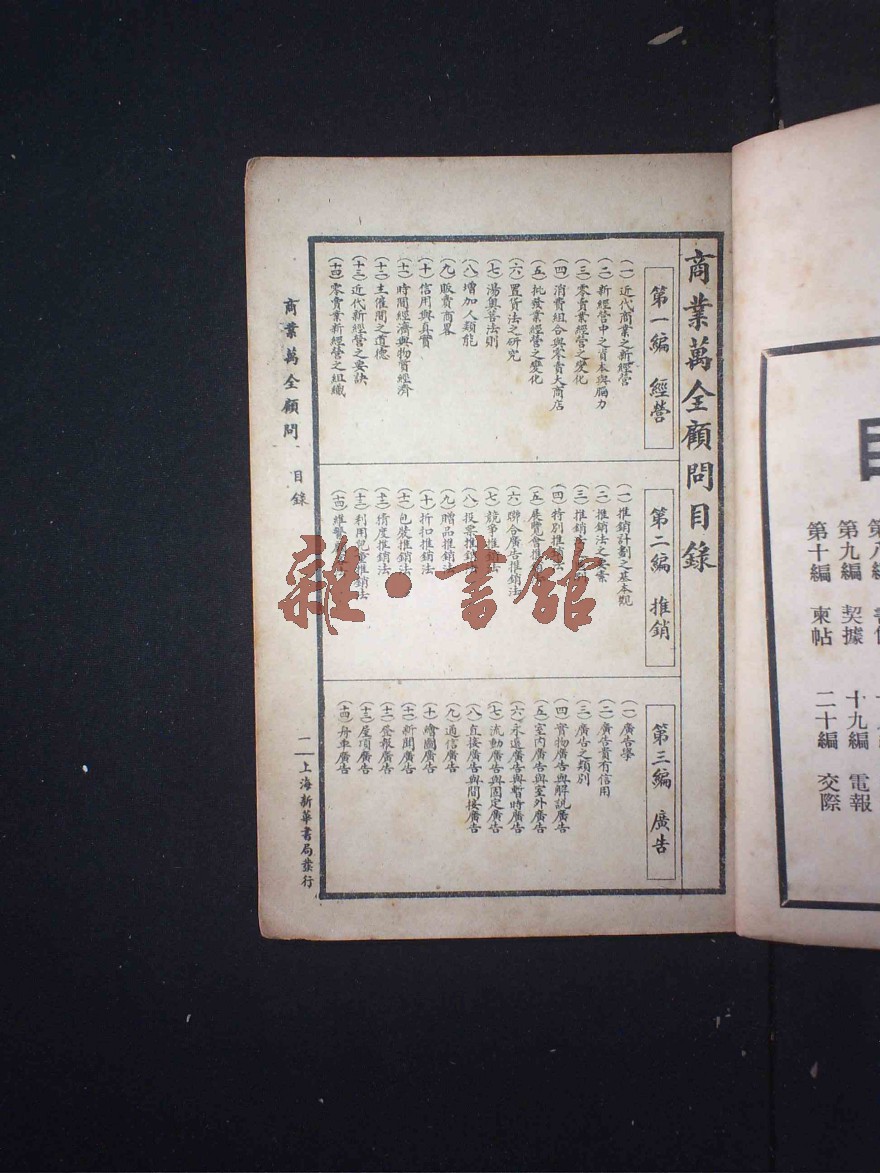 商業萬全顧問目錄
第一編 經營
(一)近代商業之新經營
(二)新經營中之資本與腦力
(三)零賣業經營之變化
(四)消費組合與零賣大商店
(五)批發業經營之變化
(六)置貨法之研究
(七)湯奧善法則
(八)增加人類能
(九)販賣商畧
(十)信用與真實
(十一)時間經濟與物質經濟
(十二)主僱間之道德
(十三)近代新經營之要訣
(十四)零賣業新經營之組織
第二編 推銷
(一)推銷計劃之基本觀
(二)推銷法之要素
(三)推銷
(四)特別推銷法
(五)展覽會推銷
(六)聯合廣告推銷法
(七)競爭推銷法
(八)投票推銷
(九)贈品推銷法
(十)折扣推銷法
(十一)包裝推銷法
(十二)情度推銷法
(十三)利用兒童推銷法
(十四)維繫
第三編 廣告
(一)廣告學
(二)廣告貴有信用
(三)廣告之類別
(四)實物廣告與解說廣告
(五)室內廣告與室外廣告
(六)永遠廣告與暫時廣告
(七)流動廣告與固定廣告
(八)直接廣告與間接廣告
(九)通信廣告
(十)繪圖廣告
(十一)新聞廣告
(十二)登報廣告
(十三)屋頂廣告
(十四)舟車廣告
商業萬全顧問 目錄
一 上海新華書局發行
雜·書館
第九編 契據 十九編 電報
第十編 柬帖 二十編 交際